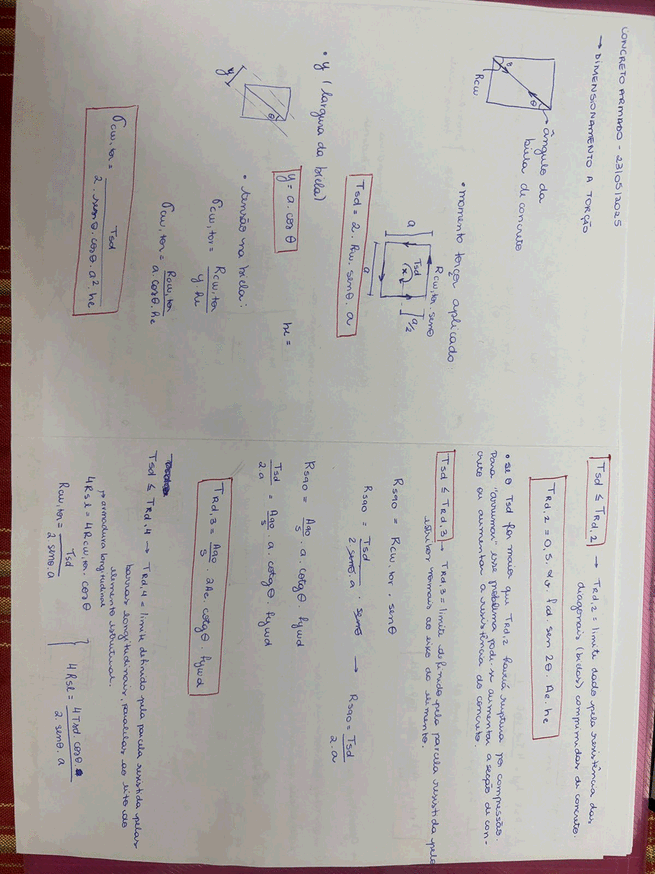 CONCRETO ARMADO - 23/05/2025
→ DIMENSIONAMENTO A TORÇÃO
θ
θ
Rcw
→ ângulo da
biela de concreto
• momento torçor aplicado:
Rcw,tor. senθ
Tsd
a
a/2
a
Tsd = 2. Rw. senθ. a
• y (largura da biela)
y
θ
y = a. cos θ
he =
• tensão na biela:
σcw,tor = Rcw,tor / y he
σcw,tor = Rcw,tor / a. cosθ. he
σcw,tor = Tsd / 2. senθ. cosθ. a². he
Tsd ≤ TRd,2 → TRd,2 = limite dado pela resistência das
diagonais (bielas) comprimidas de concreto.
TRd,2 = 0,5. αv. fcd. sen 2θ. Ae. he
• se o Tsd for maior que TRd,2 haverá ruptura por compressão.
Para "arrumar" esse problema pode se aumentar a seção de con-
creto ou aumentar a resistência do concreto.
Tsd ≤ TRd,3 → TRd,3 = limite definido pela parcela resistida pelo
estribos normais ao eixo do elemento.
Rs90 = Rcw,tor. senθ
Rs90 = Tsd / 2 senθ. a . senθ → Rs90 = Tsd / 2. a
Rs90 = A90 / s . a. cotgθ fywd
Tsd / 2a = A90 / s . a. cotgθ. fywd
TRd,3 = A90 / s . 2Ae. cotgθ. fywd
Tsd ≤ TRd,4 → TRd,4 = limite definido pela parcela resistida pelas
barras longitudinais, paralelas ao eixo do
elemento estrutural.
→ armadura longitudinal
4Rsl = 4Rcw,tor. cosθ
Rcw,tor = Tsd / 2 senθ. a
} 4Rsl = 4Tsd. cosθ / 2. senθ. a